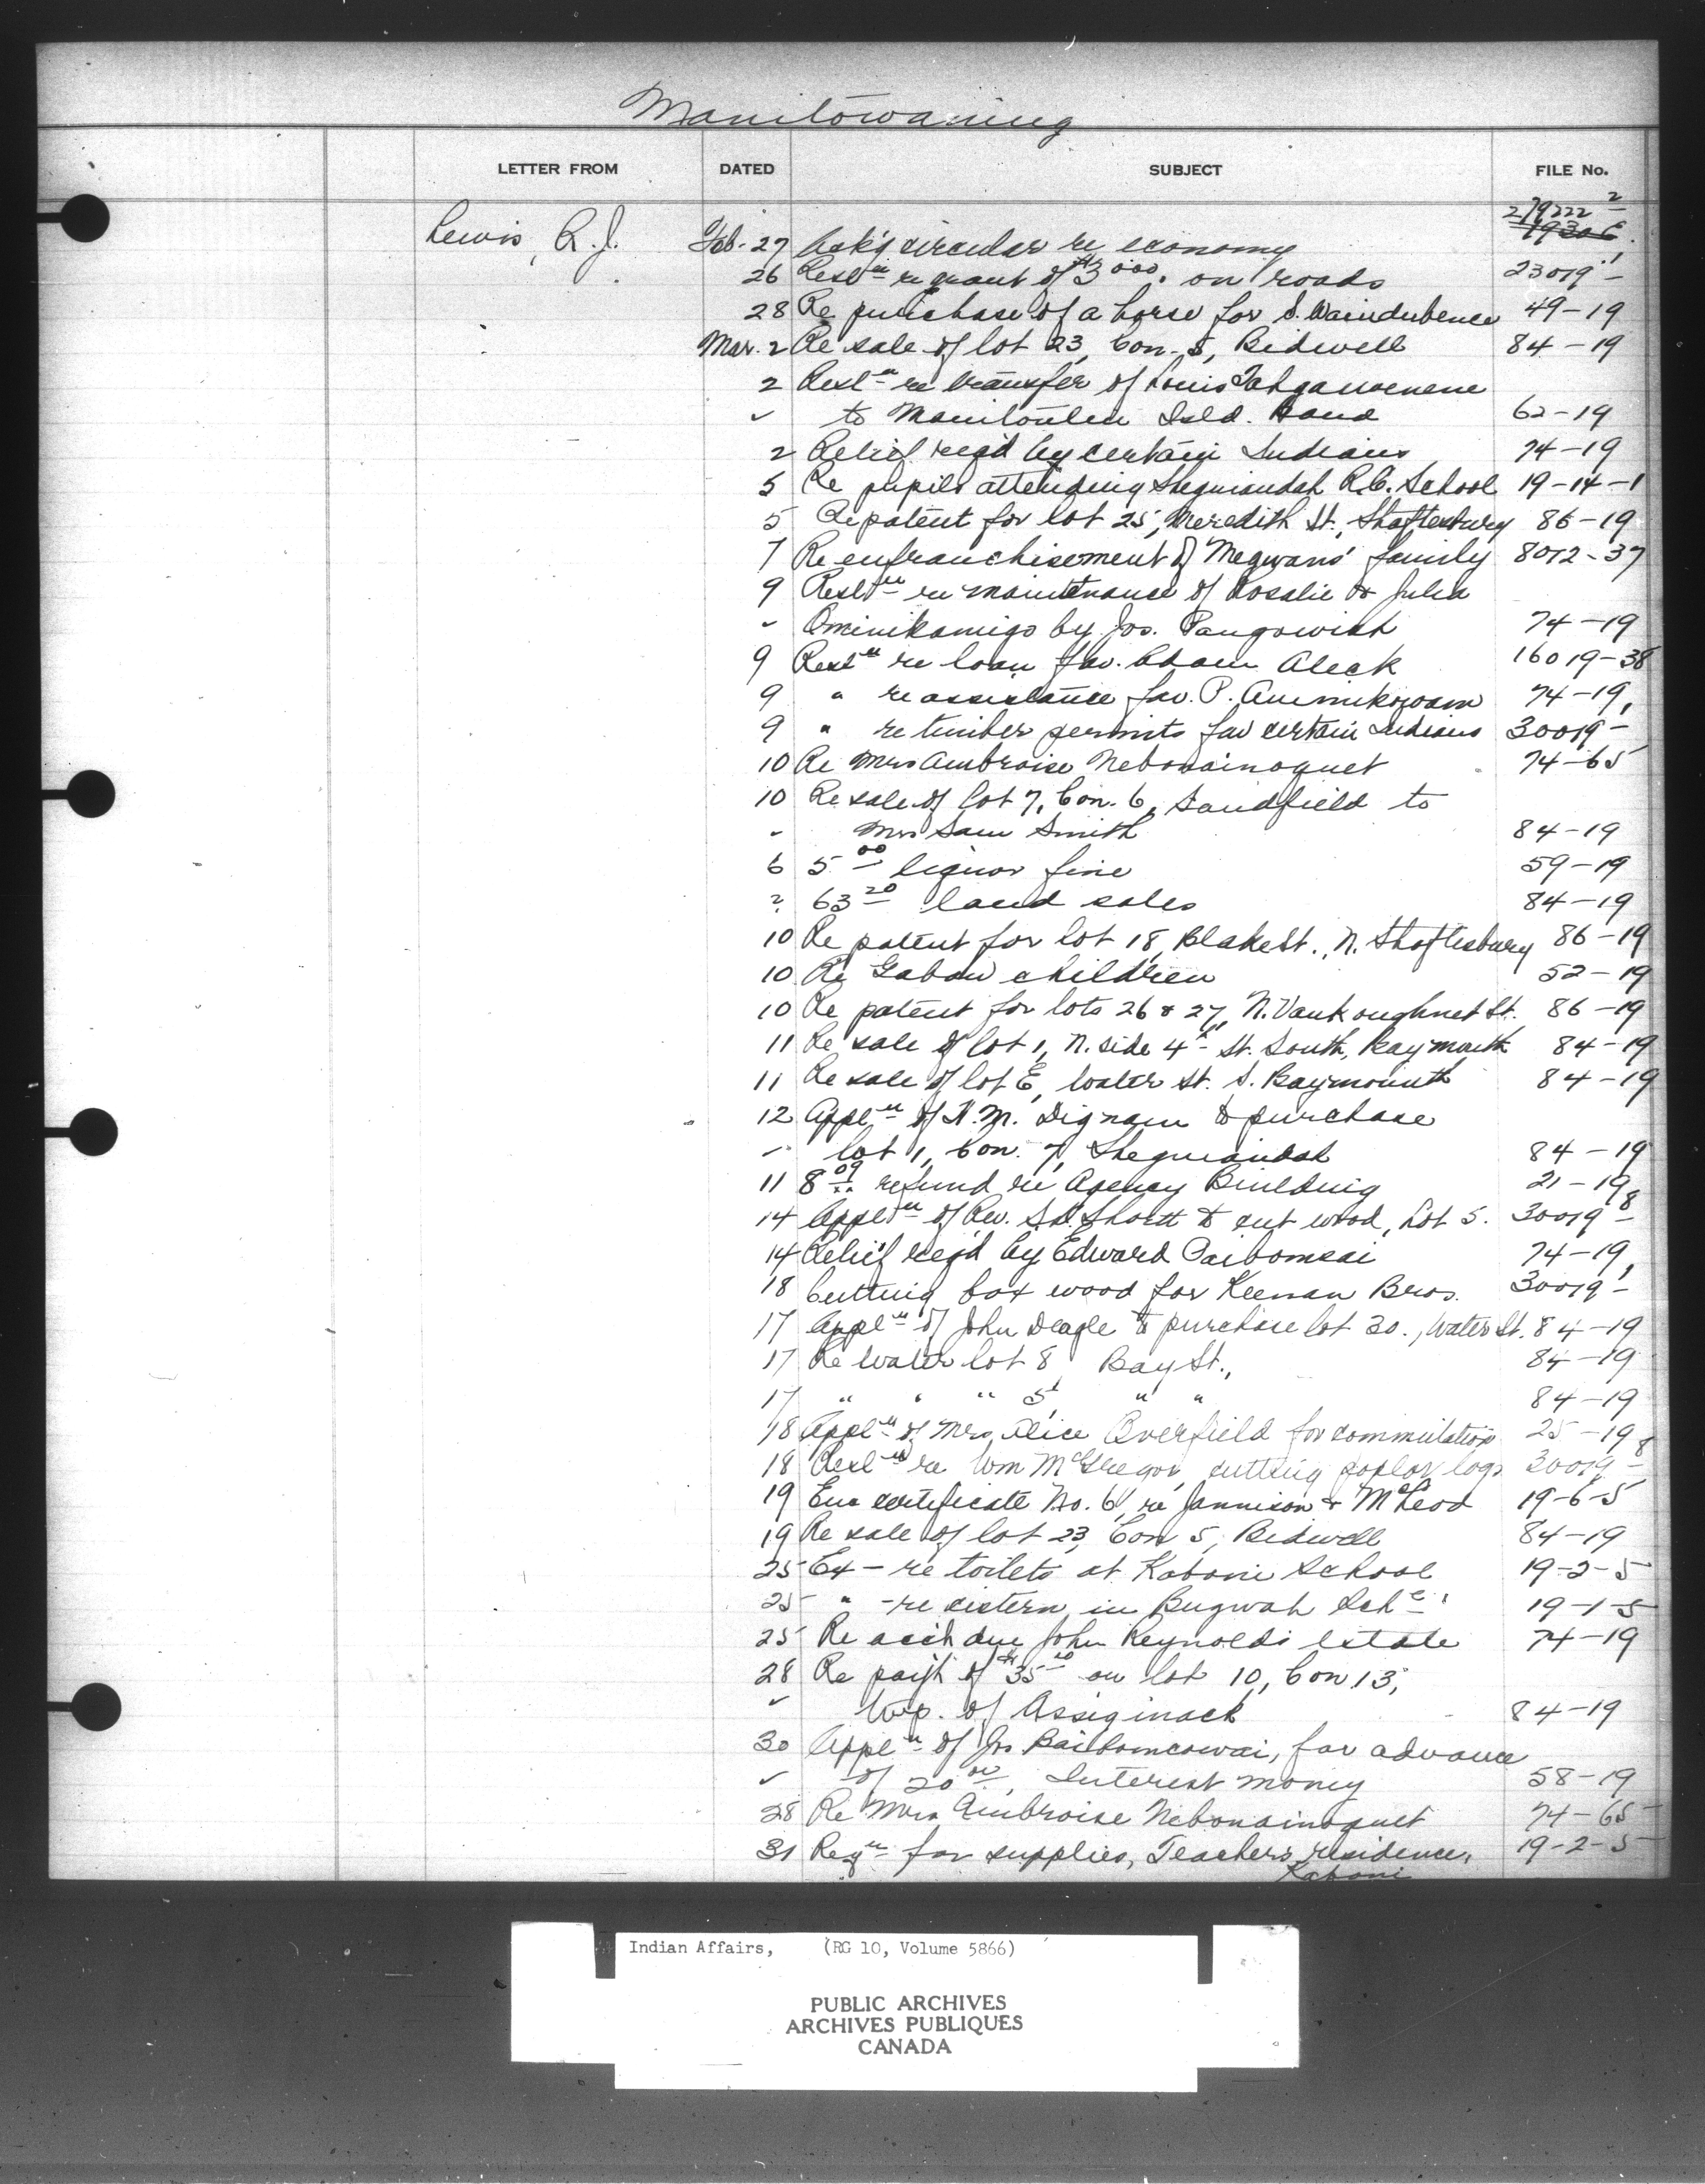 Manitowaning
LETTER FROM DATED SUBJECT FILE No.
279222 2
Lewis, R. J. Feb. 27 Ack'g circular re economy 19306
26 Resl'n re grant of $3000. on roads 23019-1
28 Re purchase of a horse for S. 49-19
Mar. 2 Re sale of lot 23, Con. 5, Bidwell 84-19
2 Resl'n re transfer of Louis
✓ to Manitoulin Isld. Band 62-19
2 Relief req'd by certain Indians 74-19
5 Re pupils attending Sheguiandah R.C. School 19-14-1
5 Re patent for lot 25, Meredith St., Shaftesbury 86-19
7 Re enfranchisement of Megwans' family 8012-37
9 Resl'n re maintenance of Rosalie & Julia
✓ Ominikamigo by Jos. Pangowish 74-19
9 Resl'n re loan fav. Adam Aleck 16019-38
9 " re assistance fav. P. 74-19
9 " re timber permits fav certain Indians 30019-1
10 Re Mrs Ambroise Nebonainoquet 74-65
10 Re sale of lot 7, Con. 6, Sandfield to
✓ Mrs Sam Smith 84-19
6 5 00 liquor fine 59-19
? 63 20 land sales 84-19
10 Re patent for lot 18, Blake St., N. Shaftesbury 86-19
10 Re Gabow children 52-19
10 Re patent for lots 26 & 27, N. Vankoughnet St. 86-19
11 Re sale of lot 1, N. side 4th St. South, Baymouth 84-19
11 Re sale of lot E, Water St. S. Baymouth 84-19
12 Appl'n of H. M. Dignam to purchase
✓ lot 1, Con. 7, Sheguiandah 84-19
11 8 09 refund re Agency Building 21-19
14 Appl'n of Rev. Shortt to cut wood, Lot 5. 30019-8
14 Relief req'd by Edward Paibomsai 74-19
18 Cutting box wood for Keenan Bros. 30019-1
17 Appl'n of John Deagle to purchase lot 30., Water St. 84-19
17 Re Water lot 8, Bay St., 84-19
17 " " " 5, " " 84-19
18 Appl'n of Mrs. Alice Overfield for commutation 25-19
18 Resl'n re Wm McGregor, cutting poplar logs 30019-8
19 Enc certificate No. 6, re Jannison & McLeod 19-6-5
19 Re sale of lot 23, Con 5, Bidwell 84-19
25 Ex- re toilets at Kaboni School 19-2-5
25 " -re cistern in Bugwah Sch'l 19-1-5
25 Re acct due John Reynolds estate 74-19
28 Re pay't of $35 20 on lot 10, Con 13,
✓ Twp. of Assiginack 84-19
30 Appl'n of Jos Baibomcowai, for advance
✓ of 20 00, Interest money 58-19
28 Re Mrs Ambroise Nebonainoquet 74-65
31 Req'n for supplies, Teachers residence, 19-2-5
Kaboni
Indian Affairs, (RG 10, Volume 5866)
PUBLIC ARCHIVES
ARCHIVES PUBLIQUES
CANADA